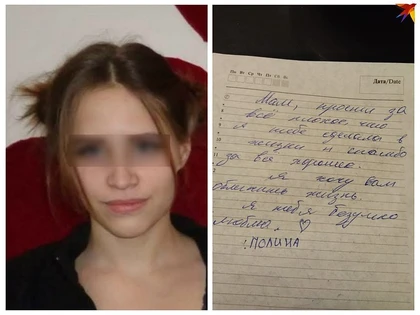 Пн Вт Ср Чт Пт Сб Вс
Дата/Date
Мам, прости за
всё плохое, что
я тебе сделала в
жизни и спасибо
за всё хорошее.
Я хочу вам
облегчить жизнь.
Я тебя безумно
люблю.
:ПОЛИНА